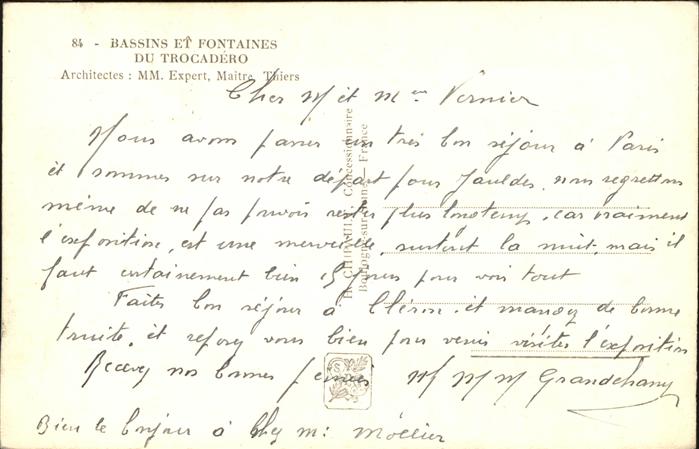 84 - BASSINS ET FONTAINES
DU TROCADÉRO
Architectes : MM. Expert, Maître, Thiers
Cher M et Mme Vernier
Nous avons passer un très bon séjour à Paris
et sommes sur notre départ pour Jauldes, nous regrettons
même de ne pas pouvoir rester plus longtemps, car vraiment
l'exposition, est une merveille, surtout la nuit, mais il
faut certainement bien 15 jours pour voir tout
Faites bon séjour à Cléron et mangez de bonne
truite, et reposez vous bien pour venir visiter l'exposition
Recevez nos bonnes pensées M M M Grandchamp
Bien le bonjour à Mr Mollier
Concessionnaire
Boulogne-sur-Seine — France